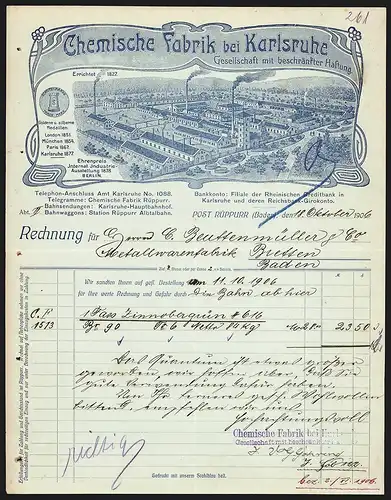 261
Chemische Fabrik bei Karlsruhe
Gesellschaft mit beschränkter Haftung
Errichtet 1822
Goldene u. silberne
Medaillen.
London 1851.
München 1854.
Paris 1867.
Karlsruhe 1877
Ehrenpreis
Internat. Industrie
Ausstellung 1878
BERLIN.
Telephon-Anschluss Amt Karlsruhe No. 1068.
Telegramme: Chemische Fabrik Rüppurr.
Bahnsendungen: Karlsruhe-Hauptbahnhof.
Bahnwaggons: Station Rüppurr Albtalbahn.
Bankkonto: Filiale der Rheinischen Creditbank in
Karlsruhe und deren Reichsbank-Girokonto.
Abt.
POST RÜPPURR (Baden), den 11. Oktober 1906
Rechnung für Herrn C. Beuttenmüller & Co
Metallwarenfabrik Bretten
Baden
Wir sandten Ihnen auf gefl. Bestellung vom 11. 10. 1906
für Ihre werte Rechnung und Gefahr durch die Bahn ab hier
C. F. 1 Fass Zinnobergrün # 616
1513 Br. 90 Netto kg 28 23 50
Das Quantum ist etwas größer
geworden, wir hoffen aber, daß Sie
gute Verwendung dafür haben.
Hochachtungsvoll
Chemische Fabrik bei Karlsruhe
Gesellschaft mit beschränkter
richtig
1906.